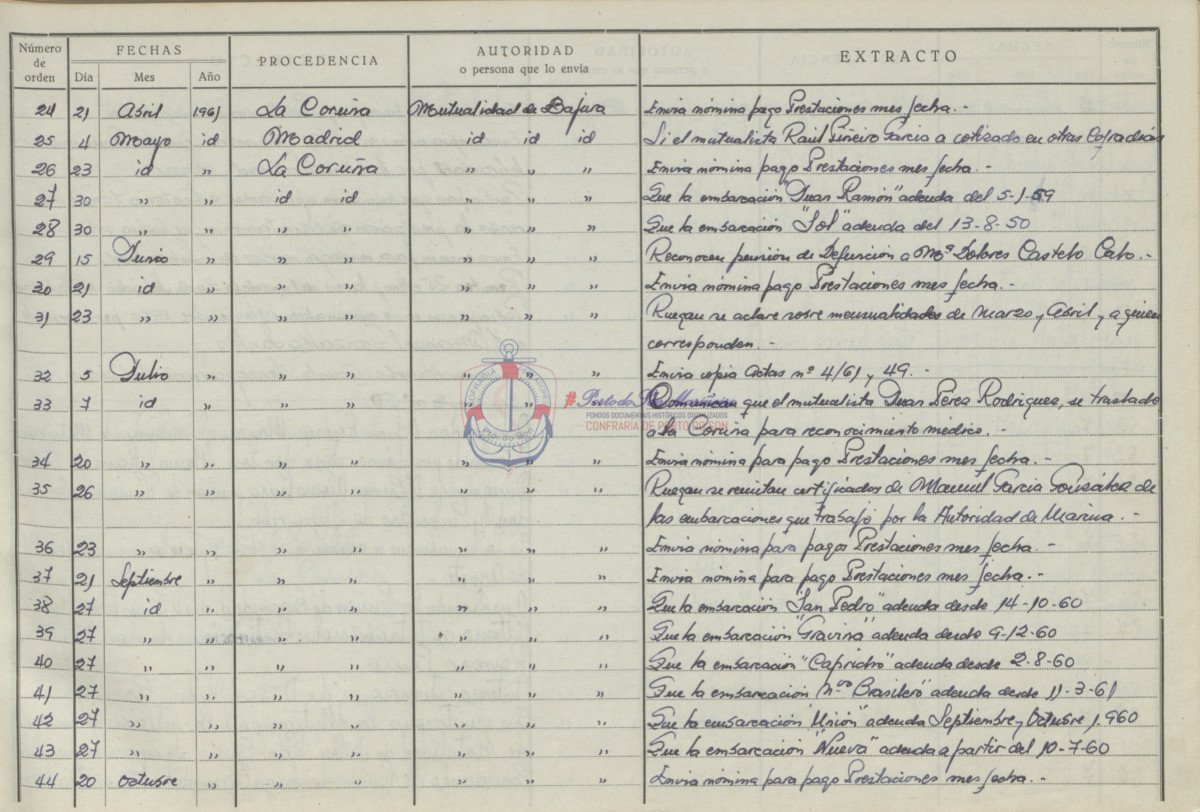 Número de orden FECHAS PROCEDENCIA AUTORIDAD o persona que lo envía EXTRACTO
Día Mes Año
24 21 Abril 1961 La Coruña Mutualidad de Bajura Envia nómina pago Prestaciones mes fecha.-
25 4 Mayo id Madrid id id id Si el mutualista Raul Piñeiro Garcia a cotizado en otras Cofradias
26 23 id " La Coruña " " " Envia nómina pago Prestaciones mes fecha.-
27 30 " " id id " " " Que la embarcación "Juan Ramón" adeuda del 5-1-59
28 30 " " " " " " " Que la embarcación "Sol" adeuda del 13-8-50
29 15 Junio " " " " " " Reconocen pensión de Defunción a Mª Dolores Castelo Cabo.-
30 21 id " " " " " " Envia nómina pago Prestaciones mes fecha.-
31 23 " " " " " " " Ruegan se aclare sobre mensualidades de Marzo y Abril, y a quien
corresponden.-
32 5 Julio " " " " " " Envia copia Actas nº 4/61 y 49.-
33 7 id " " " " " Comunican que el mutualista Juan Perez Rodriguez, se traslade
a la Coruña para reconocimiento médico.-
34 20 " " " " " " " Envia nómina para pago Prestaciones mes fecha.-
35 26 " " " " " " " Ruegan se remitan certificados de Manuel Garcia González de
las embarcaciones que trabajó por la Autoridad de Marina.-
36 23 " " " " " " " Envia nómina para pagos Prestaciones mes fecha.-
37 21 Septiembre " " " " " " Envia nómina para pago Prestaciones mes fecha.-
38 27 id " " " " " " Que la embarcación "San Pedro" adeuda desde 14-10-60
39 27 " " " " " " " Que la embarcación "Gravina" adeuda desde 9-12-60
40 27 " " " " " " " Que la embarcación "Capricho" adeuda desde 2-8-60
41 27 " " " " " " " Que la embarcación "Brasilero" adeuda desde 11-3-61
42 27 " " " " " " " Que la embarcación "Unión" adeuda Septiembre y Octubre 1.960
43 27 " " " " " " " Que la embarcación "Nueva" adeuda a partir del 10-7-60
44 20 Octubre " " " " " " Envia nómina para pago Prestaciones mes fecha.-
FONDOS DOCUMENTAIS HISTÓRICOS DIXITALIZADOS
CONFRARÍA DE PORTO DO SON